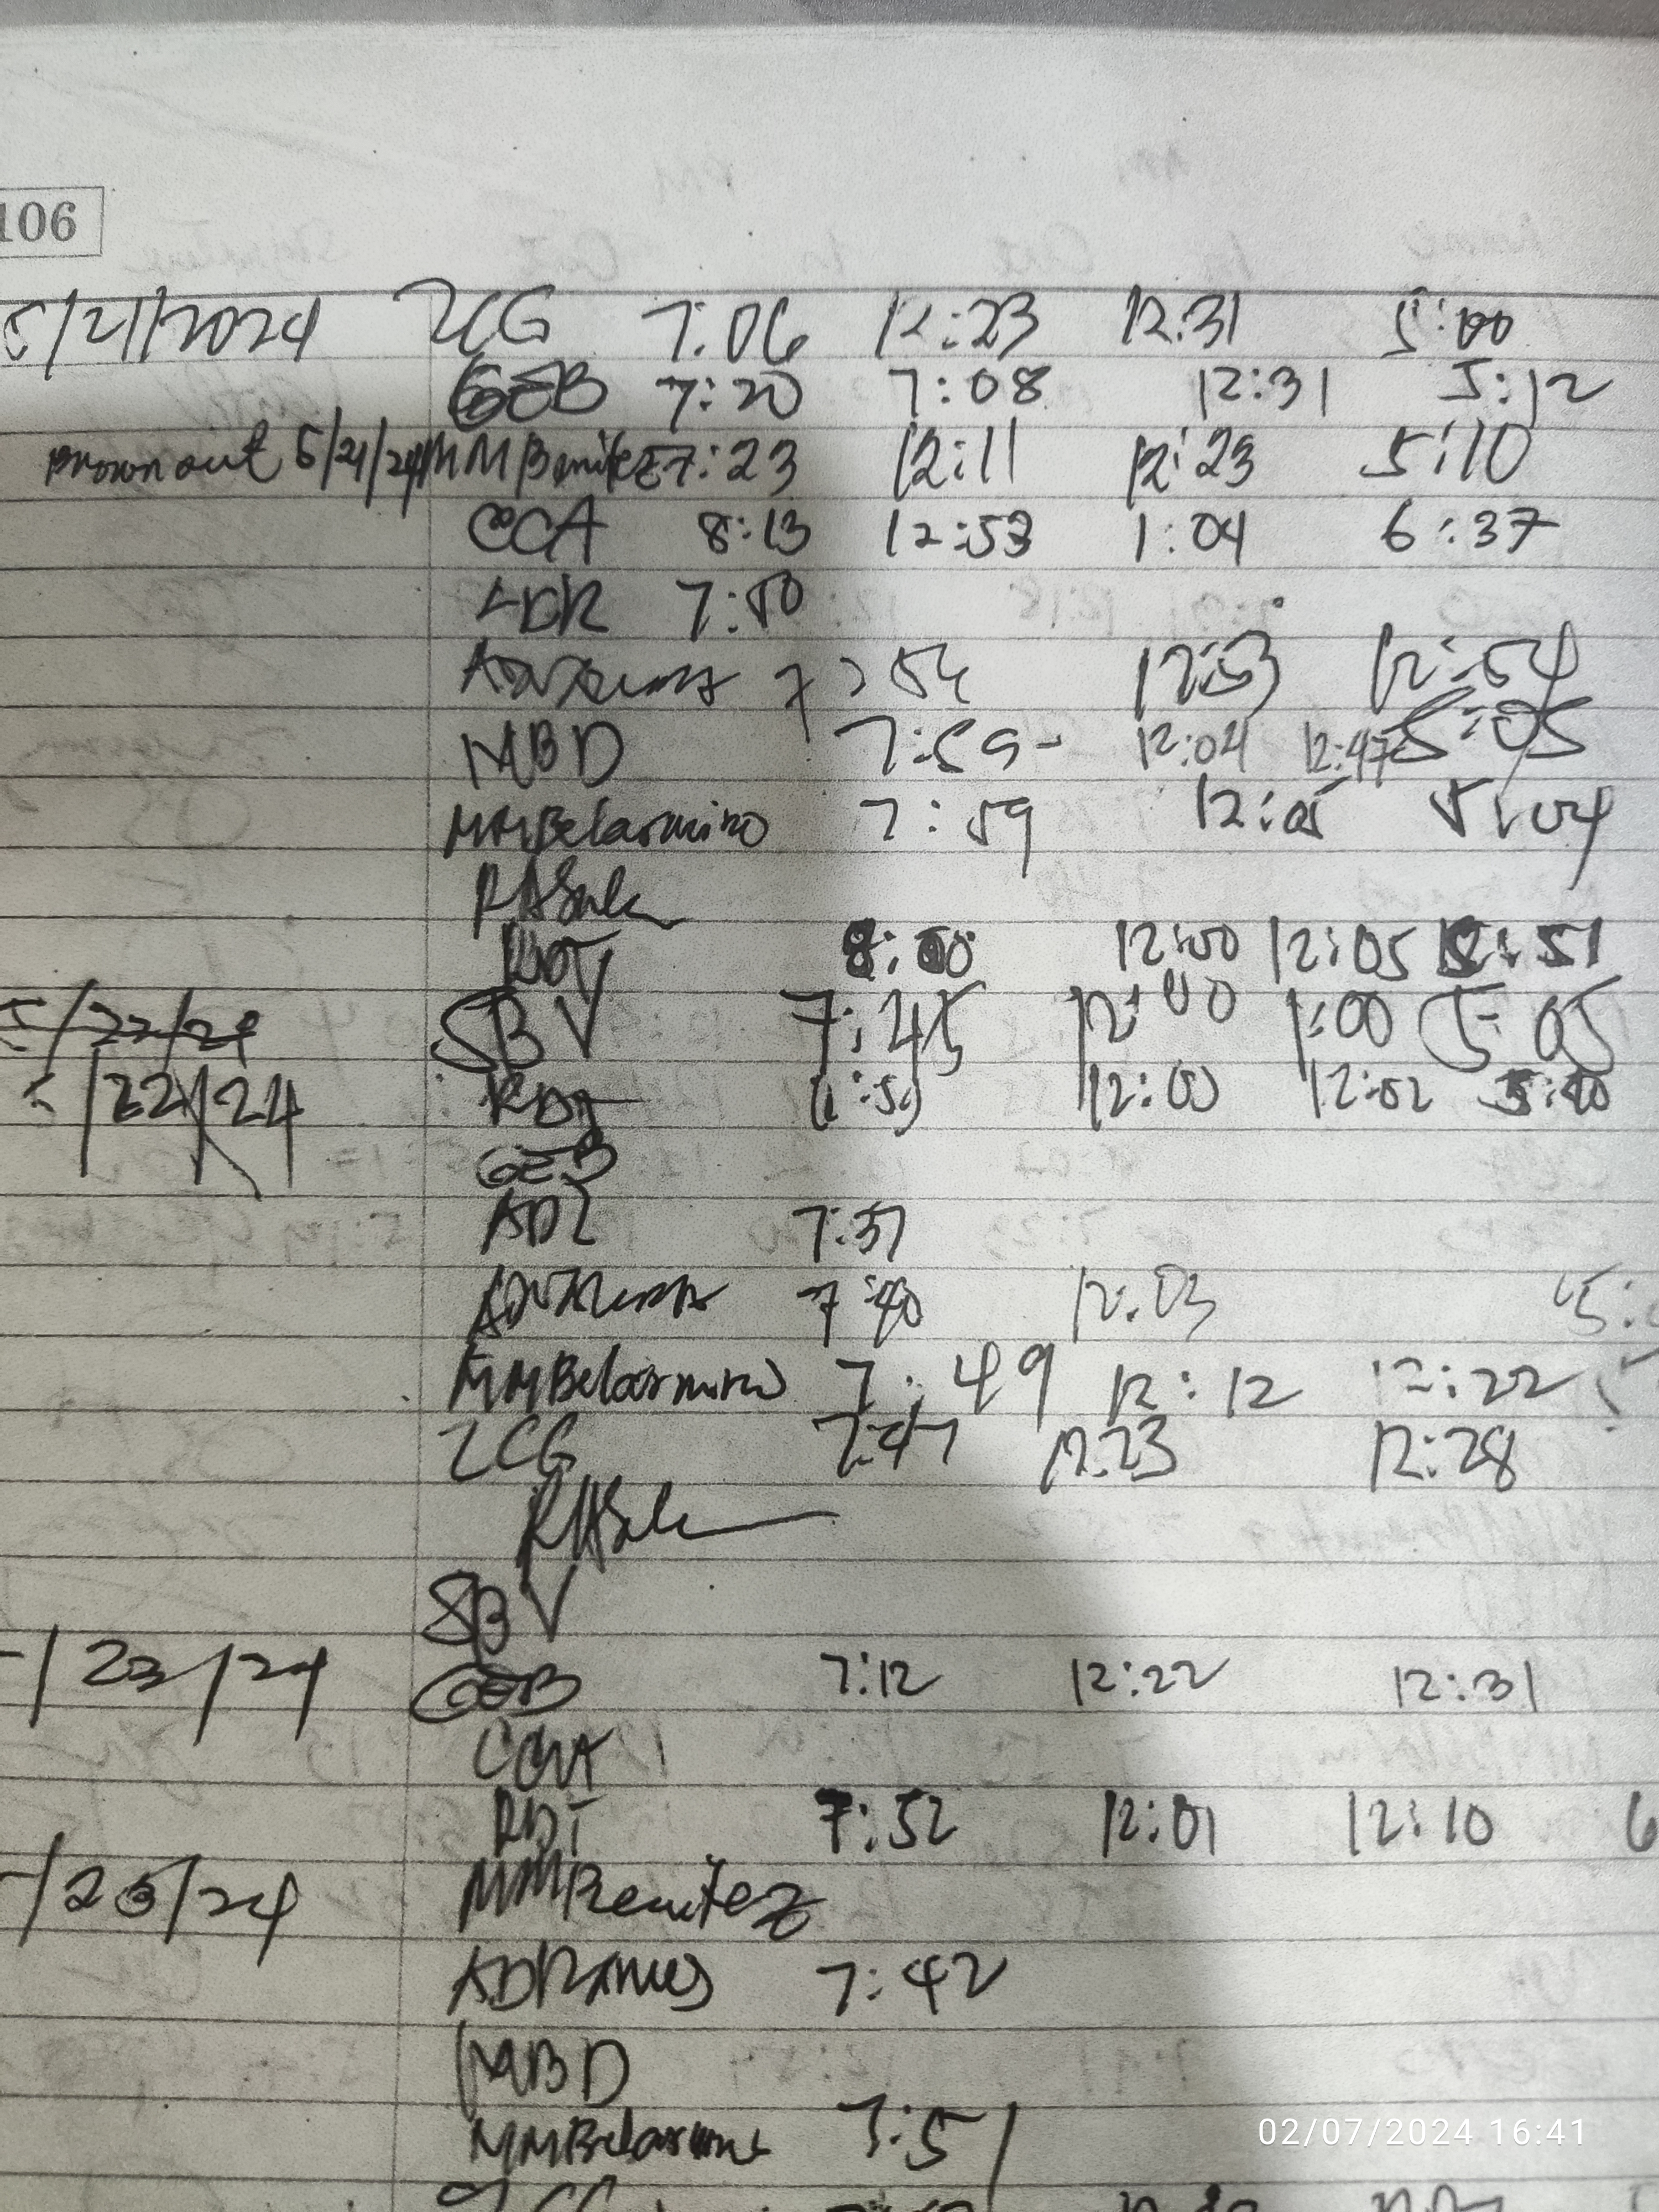 106
5/21/2024 ZCG 7:06 12:23 12:31 5:00
GEB 7:20 7:08 12:31 5:12
Brown out 5/21/24 MMBenitez 7:23 12:11 12:23 5:10
CCA 8:13 12:53 1:04 6:37
7:50
7:54 12:53 12:54
NBD 7:59- 12:04 12:47 5:05
MMBelarmino 7:59 12:05 5:04
RASula
RDT 8:00 12:00 12:05 51
5/22/24 SBV 7:45 12:00 1:00 5:05
5/22/24 RDT :59 12:00 12:02 5:00
GEB
ADZ 7:37
7:40 12:03 5:
MMBelarmino 7:49 12:12 12:22
ZCG 7:47 12:23 12:28
RASula
SBV
/23/24 GEB 7:12 12:22 12:31
RDT 7:52 12:01 12:10 6
/23/24 MMBenitez
ADRamos 7:42
NBD
MMBelarmino 7:51
02/07/2024 16:41